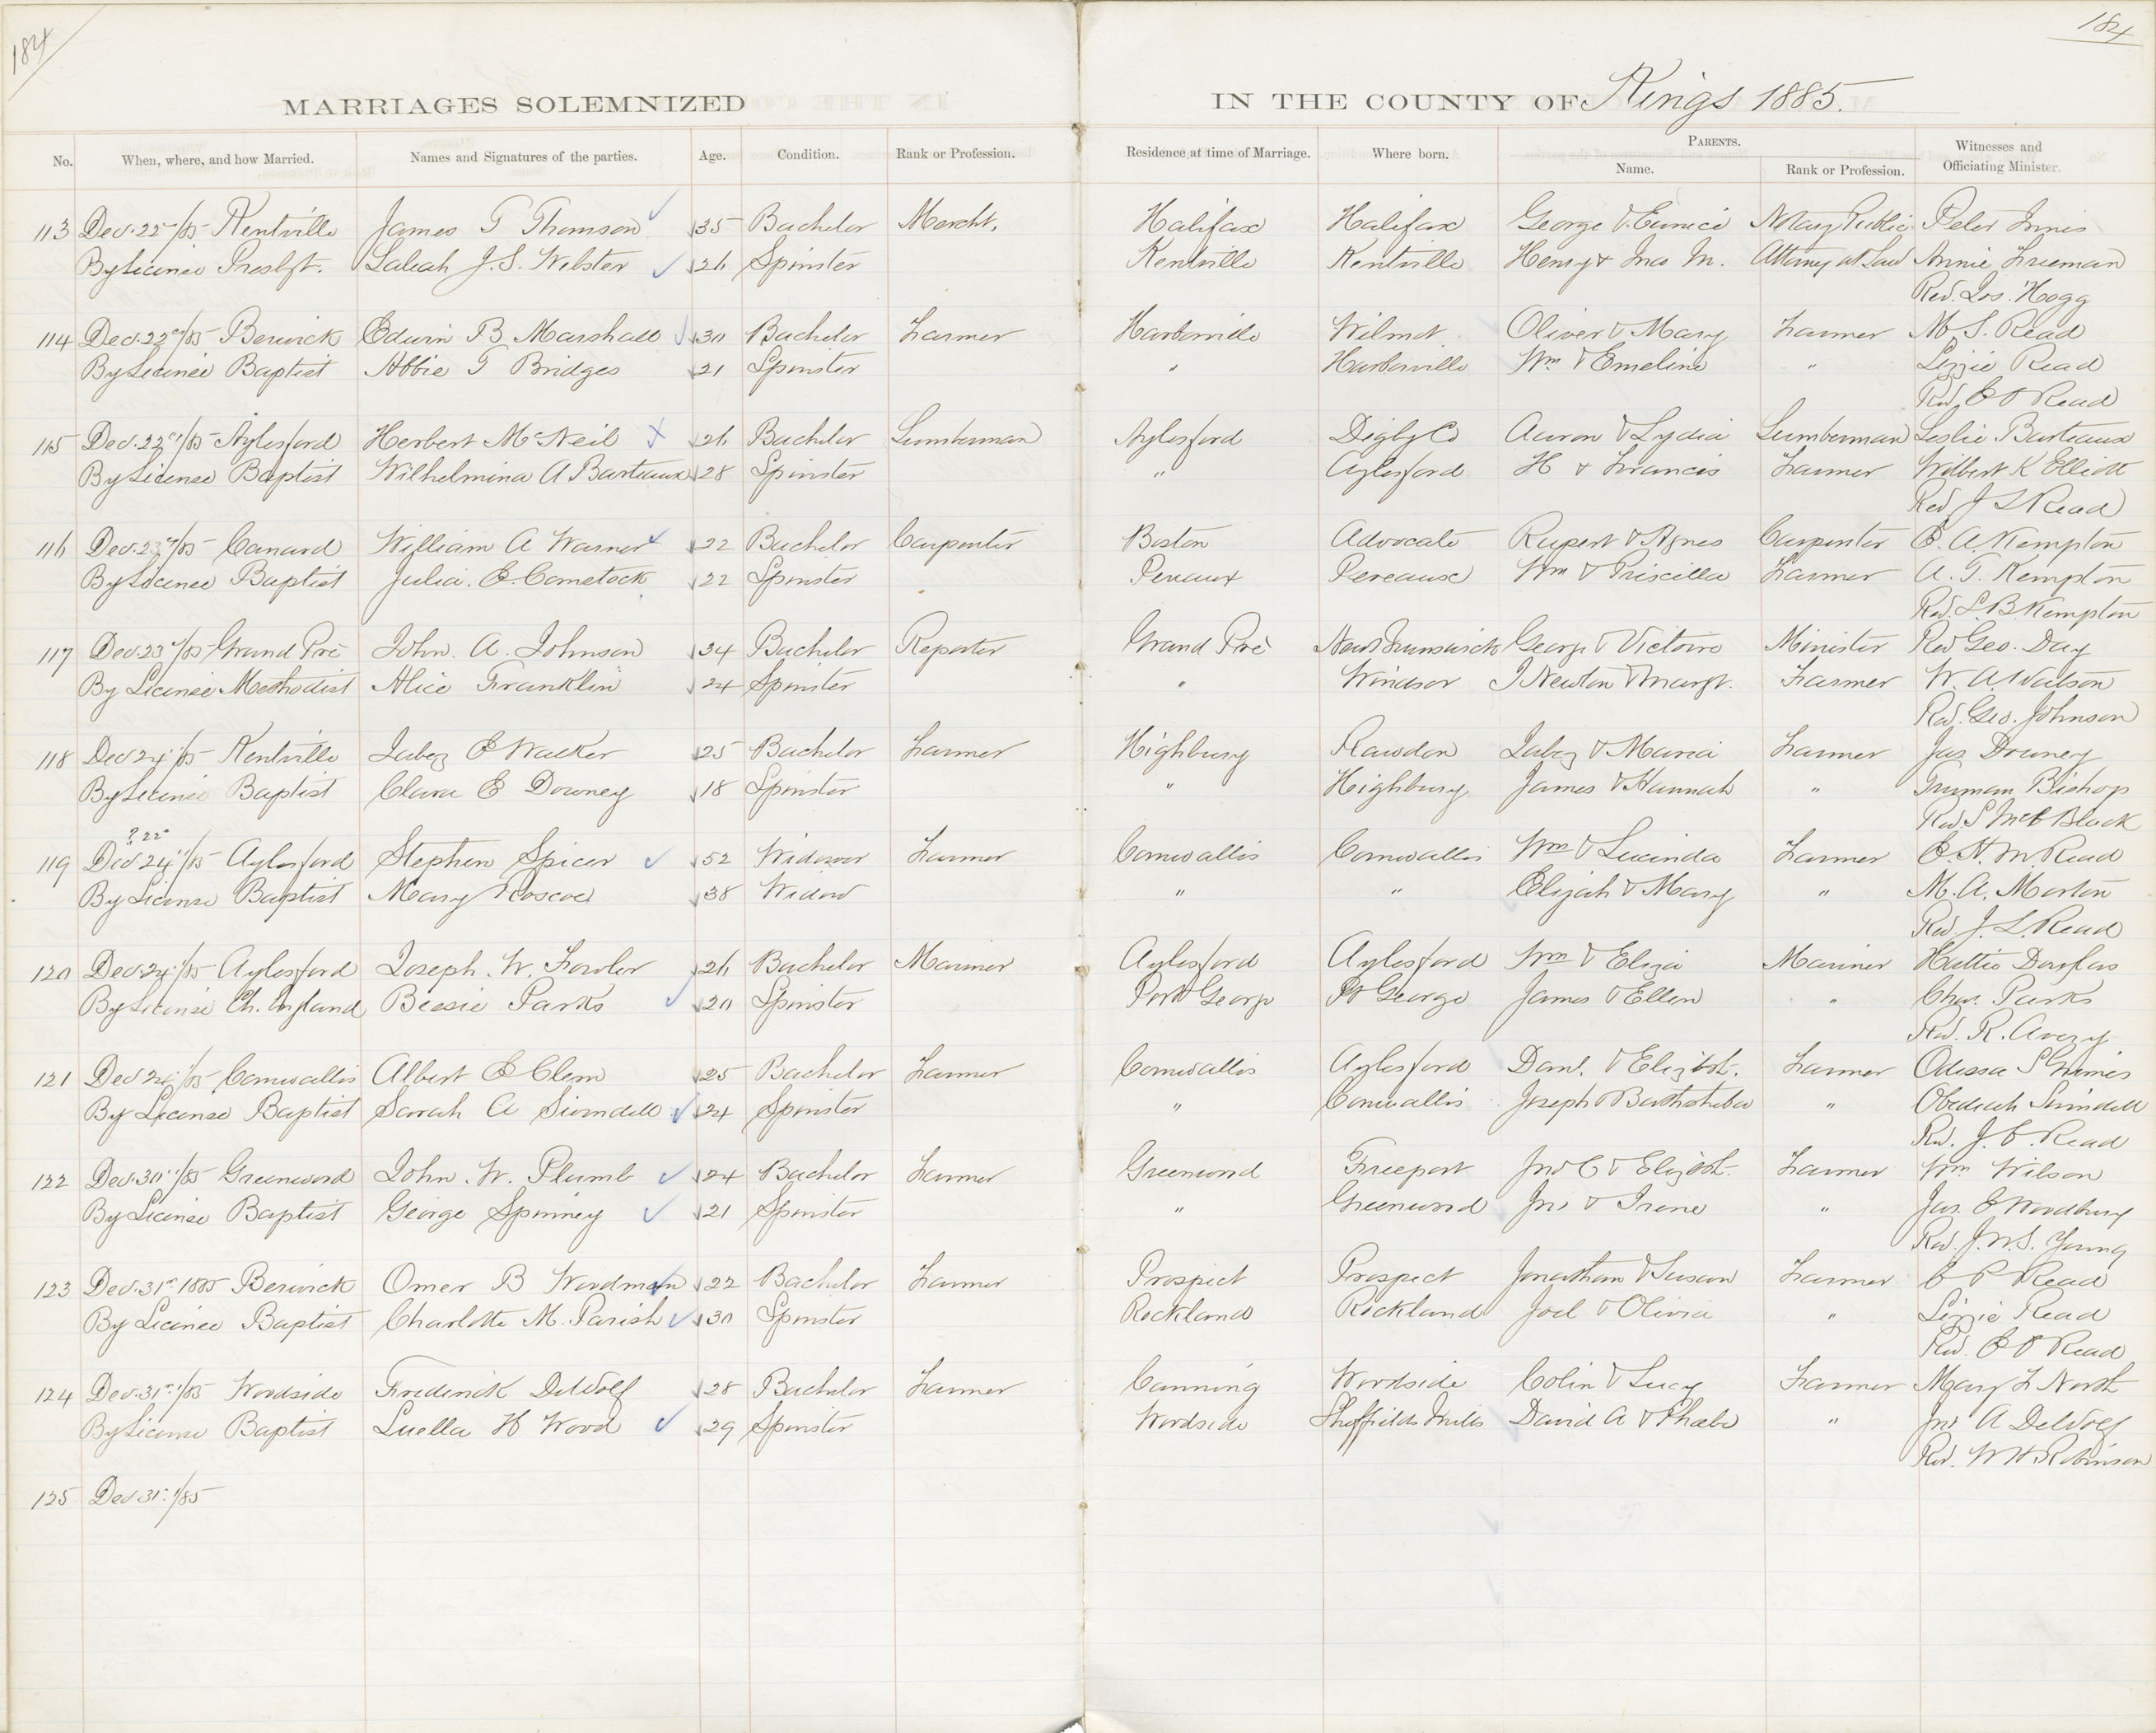 184
184
MARRIAGES SOLEMNIZED IN THE COUNTY OF Kings 1885.
No. When, where, and how Married. Names and Signatures of the parties. Age. Condition. Rank or Profession. Residence at time of Marriage. Where born. PARENTS. Name. Rank or Profession. Witnesses and Officiating Minister.
113 Dec. 22nd/85 Kentville James T Thomson 35 Bachelor Mercht. Halifax Halifax George & Eunice Notary Public Peter Innis
By License Presbyt. J. S. Webster 26 Spinster Kentville Kentville Henry & Ines M. Attorney at Law Annie Freeman
Rev. Jos. Hogg
114 Dec. 22nd/85 Berwick Edwin B Marshall 30 Bachelor Farmer Harborville Wilmot Oliver & Mary Farmer M S. Read
By License Baptist Abbie T Bridges 21 Spinster " Harborville Wm & Emeline " Lizzie Read
Rev. E O Read
115 Dec. 22nd/85 Aylesford Herbert McNeil 26 Bachelor Lumberman Aylesford Digby Co Aaron & Lydia Lumberman Leslie Barteaux
By License Baptist Wilhelmina A Barteaux 28 Spinster " Aylesford H & Francis Farmer Wilbert K Elliott
Rev J L Read
116 Dec. 23rd/85 Canard William A Warner 22 Bachelor Carpenter Boston Advocate Rupert & Agnes Carpenter E. A. Kempton
By License Baptist Julia. E. Comstock 22 Spinster Pereaux Pereaux Wm & Priscilla Farmer A. T. Kempton
Rev. S. B Kempton
117 Dec 23rd/85 Grand Pré John. A. Johnson 34 Bachelor Reporter Grand Pré New Brunswick George & Victoire Minister Rev Geo. Day
By License Methodist Alice Franklin 24 Spinster " Windsor J Newton & Margt. Farmer W. A. Watson
Rev. Geo. Johnson
118 Dec 24"/85 Kentville Jabez E Walker 25 Bachelor Farmer Highbury Rawdon Jabez & Maria Farmer Jas Downey
By License Baptist Clara E Downey 18 Spinster " Highbury James & Hannah " Truman Bishop
Rev. S McC Black
? 22nd
119 Dec 24"/85 Aylesford Stephen Spicer 52 Widower Farmer Cornwallis Cornwallis Wm & Lucinda Farmer E. H. M. Read
By License Baptist Mary Roscoe 38 Widow " " Elijah & Mary " M. A. Morton
Rev J. L. Read
120 Dec. 24"/85 Aylesford Joseph. W. Fowler 26 Bachelor Mariner Aylesford Aylesford Wm & Eliza Mariner Hattie Douglas
By License Ch. England Bessie Parks 20 Spinster Port George Pt George James & Ellen " Chas. Parks
Rev. R. Avery
121 Dec 24"/85 Cornwallis Albert E Clem 25 Bachelor Farmer Cornwallis Aylesford Danl. & Elizbth. Farmer Odessa S Grimes
By License Baptist Sarah A Swindell 24 Spinster " Cornwallis Joseph & Bathsheba " Obediah Swindell
Rev. J. C. Read
122 Dec. 30"/85 Greenwood John. W. Plumb 24 Bachelor Farmer Greenwood Freeport Jno C & Elizbth. Farmer Wm Wilson
By License Baptist George Spinney 21 Spinster " Greenwood Jno & Irene " Jas. E Woodbury
Rev. J. W. S. Young
123 Dec. 31st 1885 Berwick Omer B Woodman 22 Bachelor Farmer Prospect Prospect Jonathan & Susan Farmer C P Read
By License Baptist Charlotte M. Parish 30 Spinster Rockland Rockland Joel & Olivia " Lizzie Read
Rev. E O Read
124 Dec. 31st/85 Woodside Frederick DeWolf 28 Bachelor Farmer Canning Woodside Colin & Lucy Farmer Mary F North
By License Baptist Luella H Wood 29 Spinster Woodside Sheffields Mills David A & Phebe " Jno A DeWolf
Rev. W H Robinson
125 Dec 31st/85